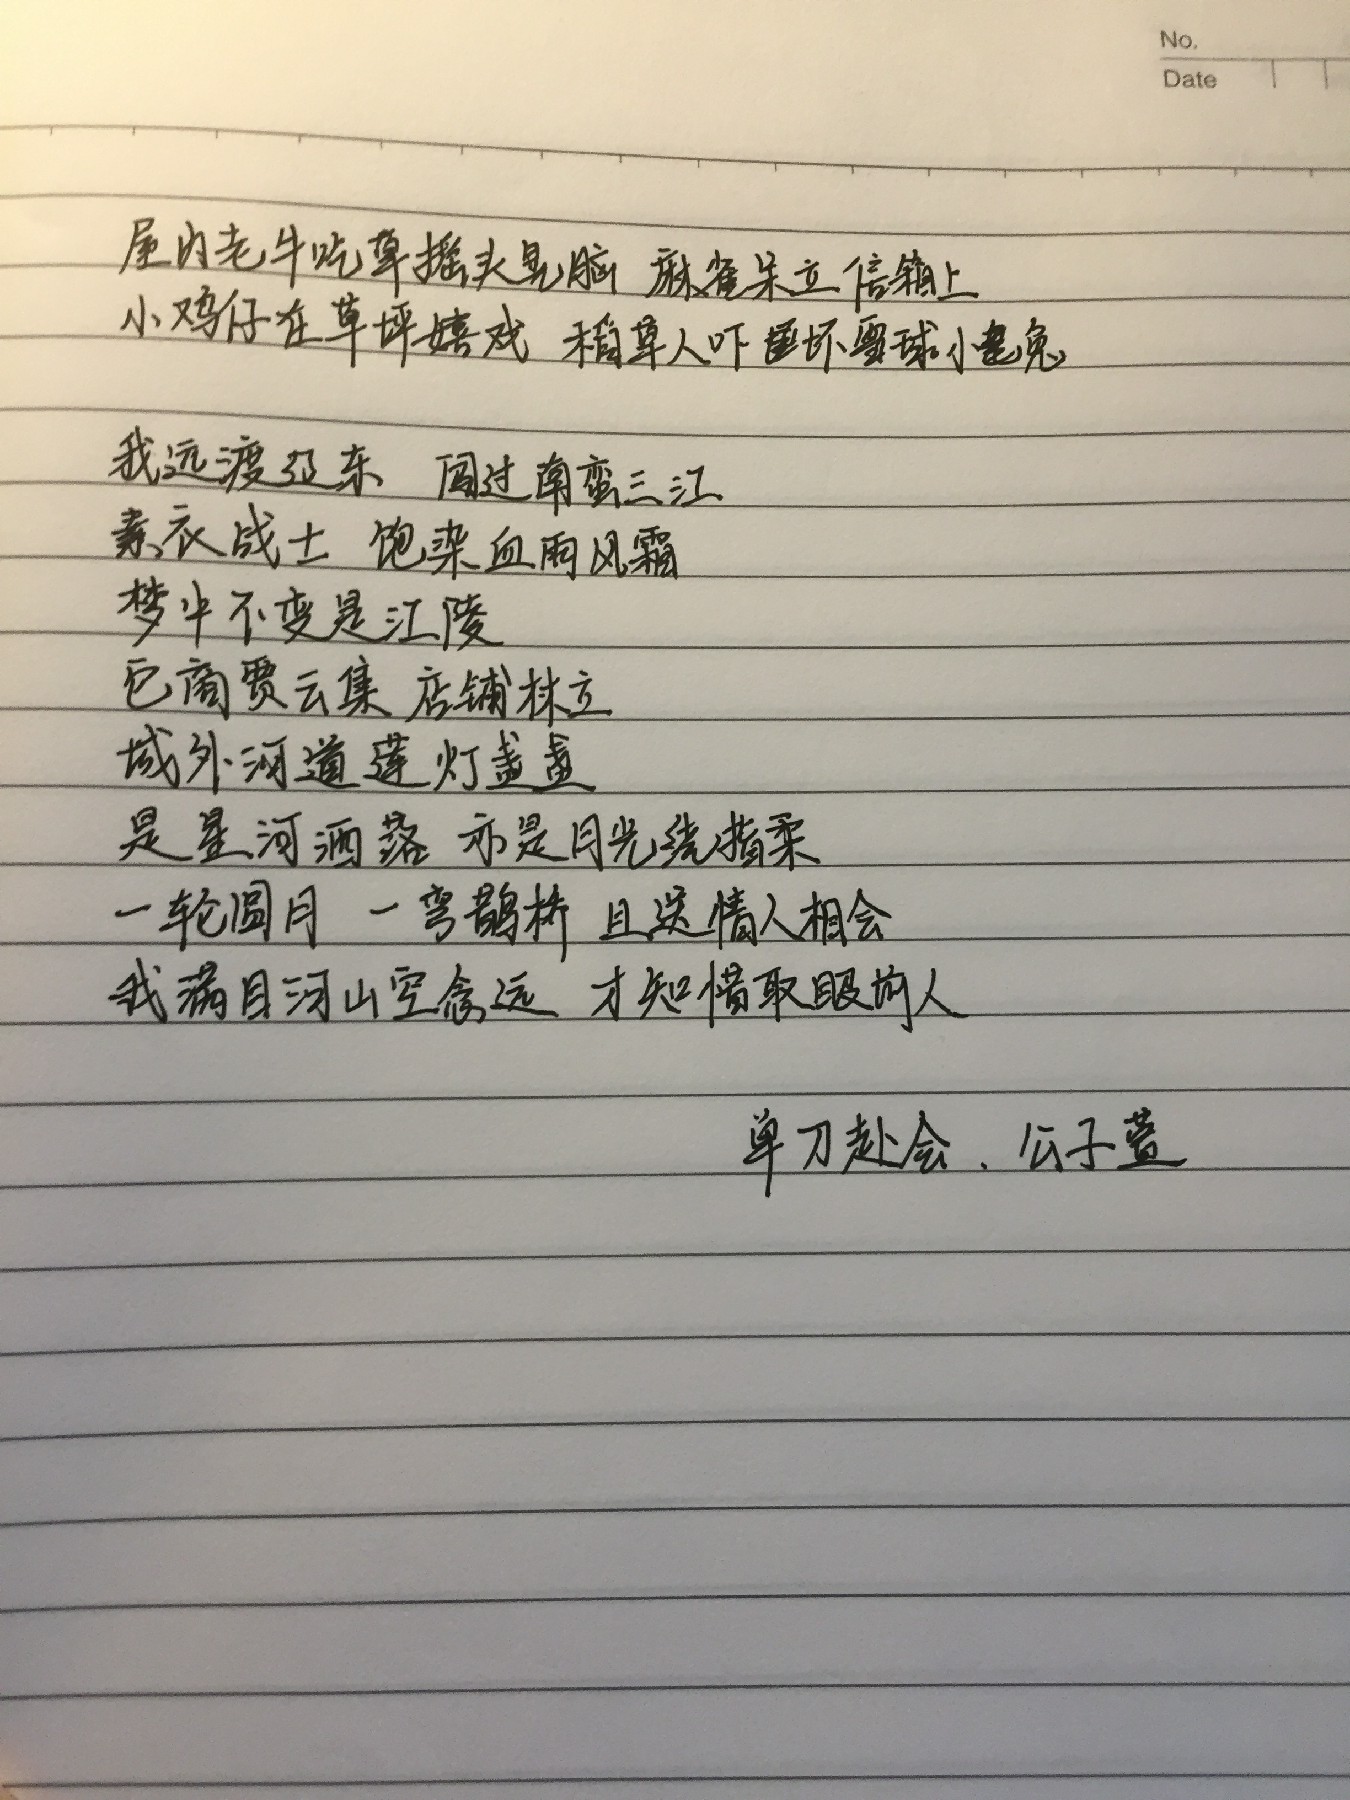 No.
Date
屋内老牛吃草摇头晃脑 麻雀呆立信箱上
小鸡仔在草坪嬉戏 稻草人吓坏雪球小鬼兔
我远渡辽东 闯过南蛮三江
素衣战士 饱染血雨风霜
梦中不变是江陵
它商贾云集 店铺林立
城外河道莲灯盏盏
是星河洒落 亦是月光绕指柔
一轮圆月 一弯鹊桥 且送情人相会
我满目河山空念远 才知惜取眼前人
单刀赴会、公子萱